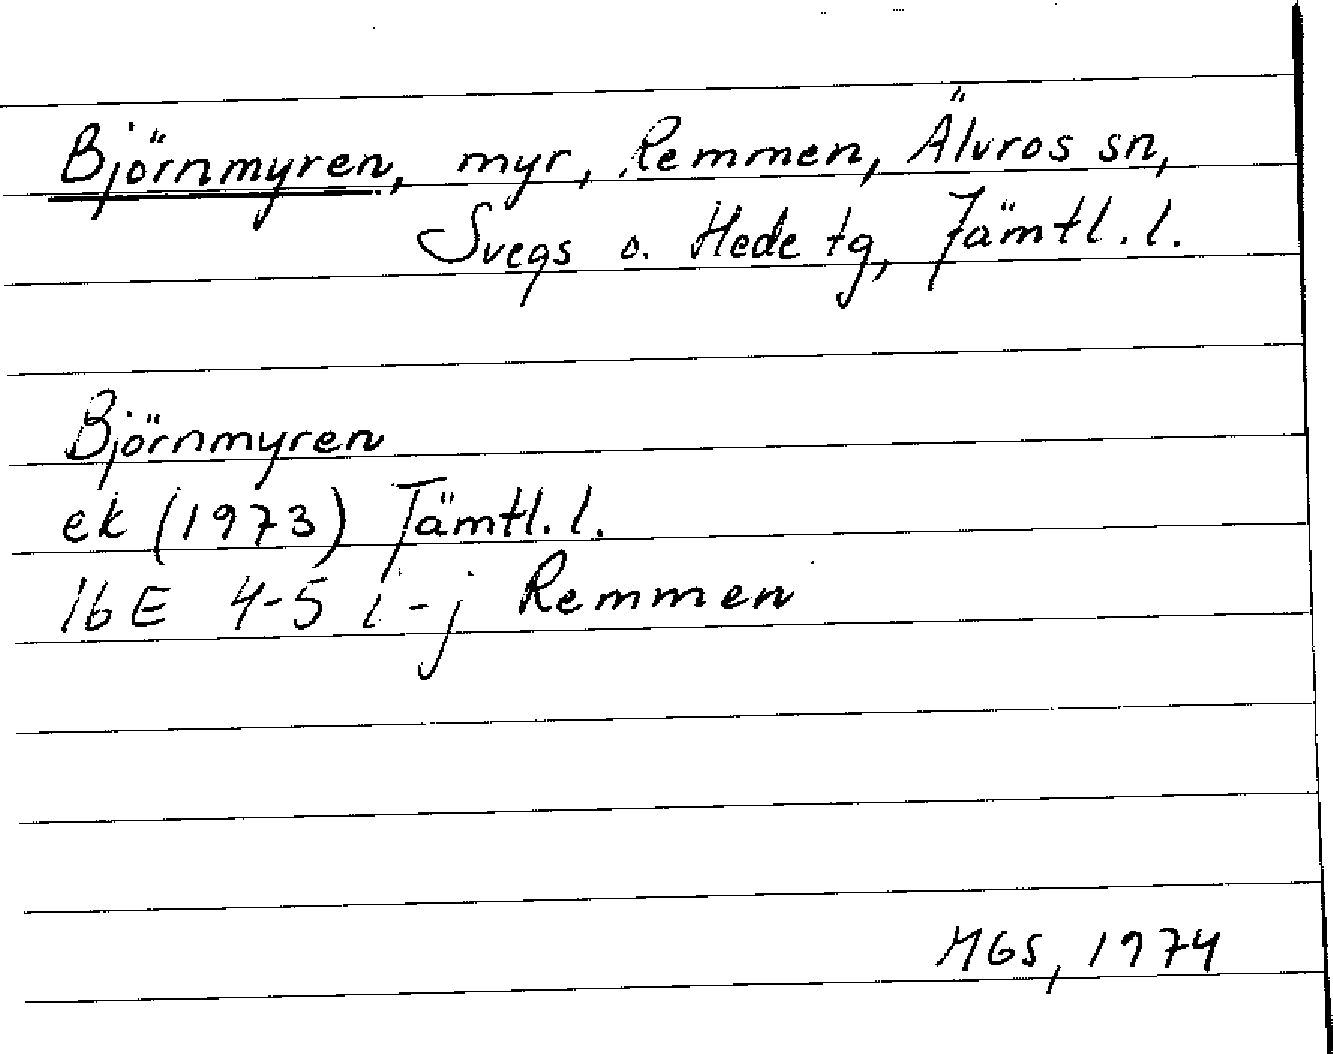 Björnmyren, myr, Remmen, Älvros sn,
Svegs o. Hede tg, Jämtl. l.
Björnmyren
ek (1973) Jämtl. l.
16E 4-5 i-j Remmen
MGS, 1974